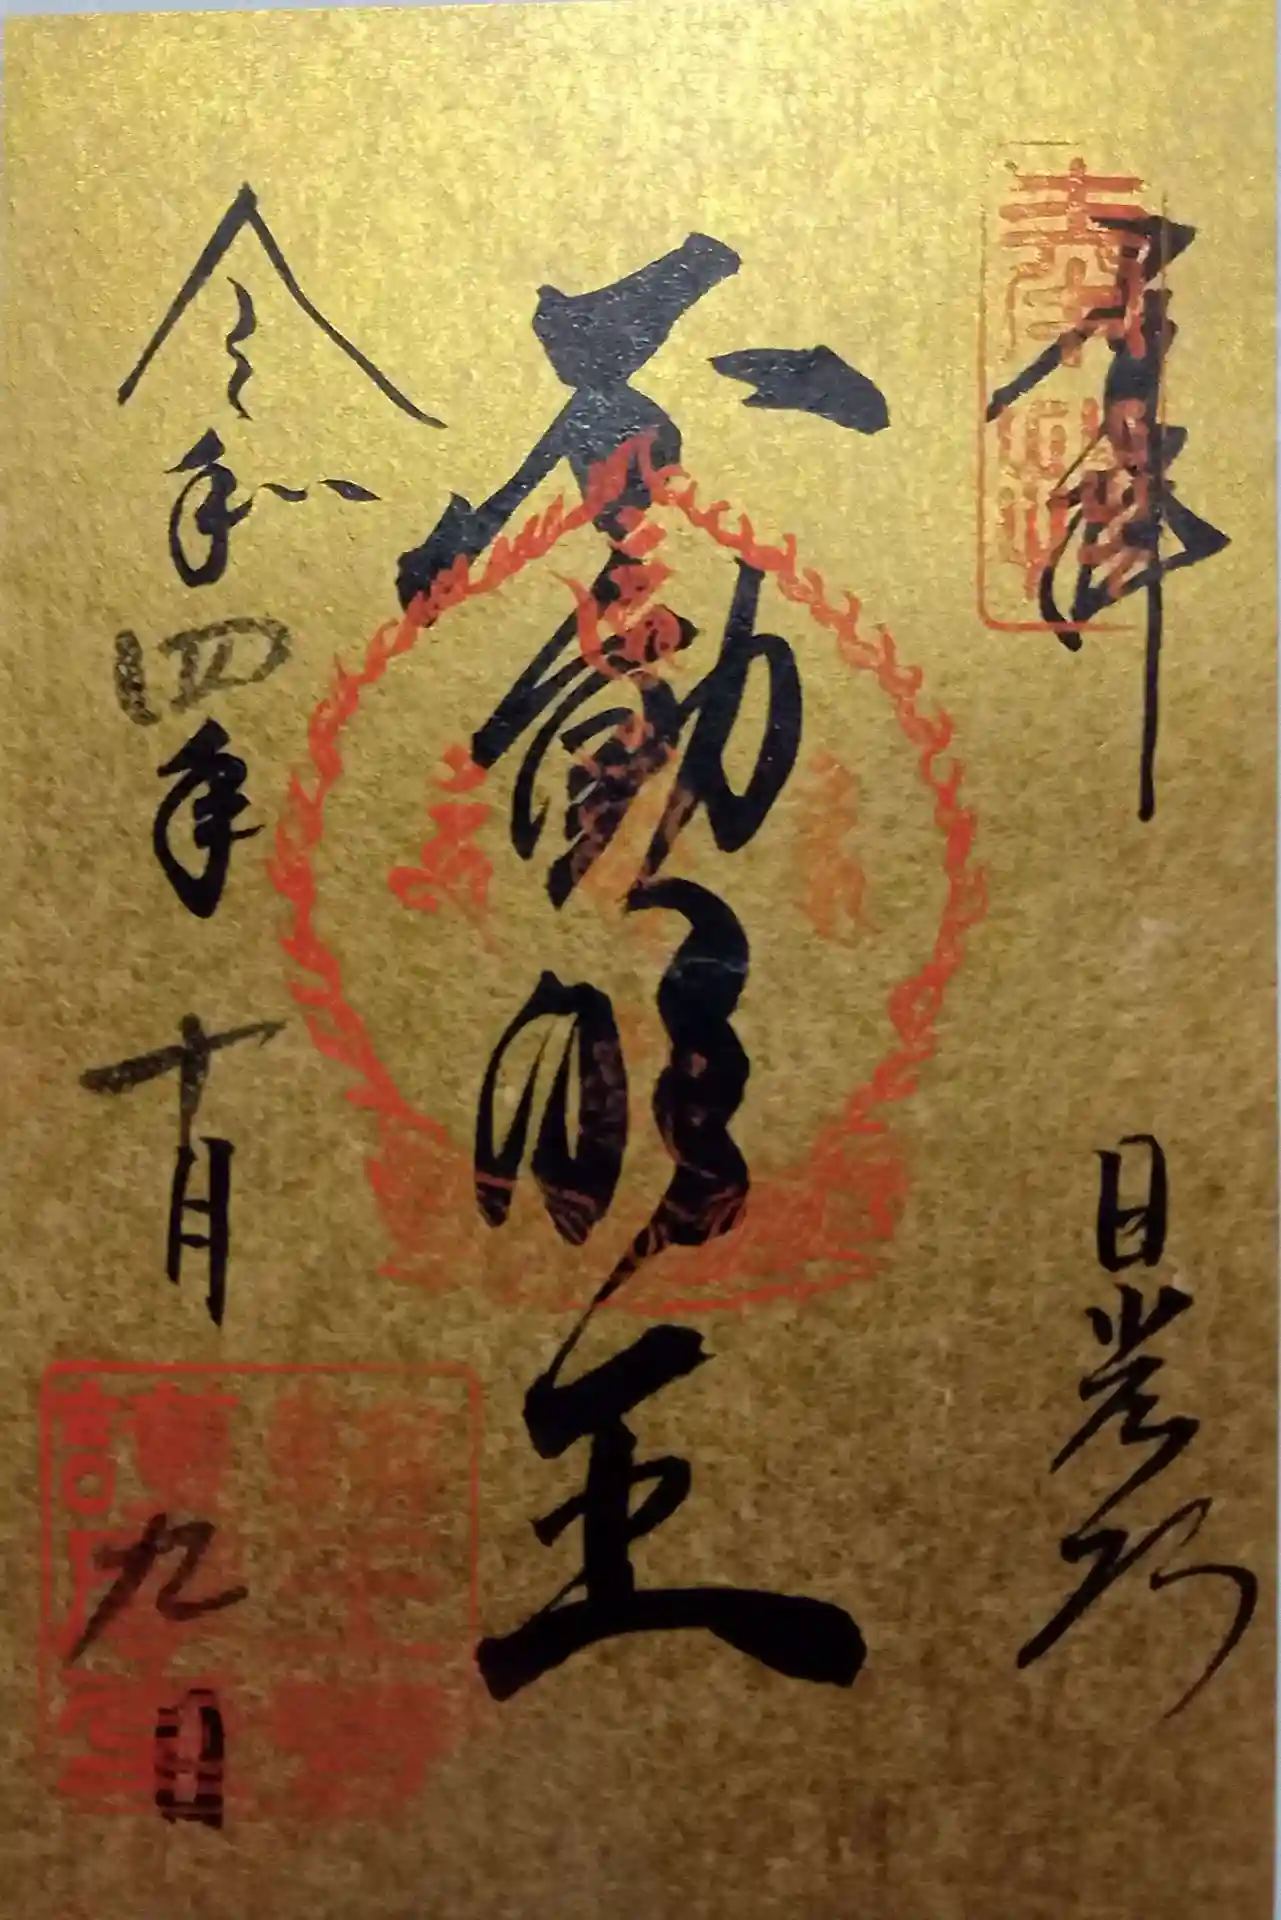 奉拝
日光山
不動明王
令和四年十月九日
護摩堂